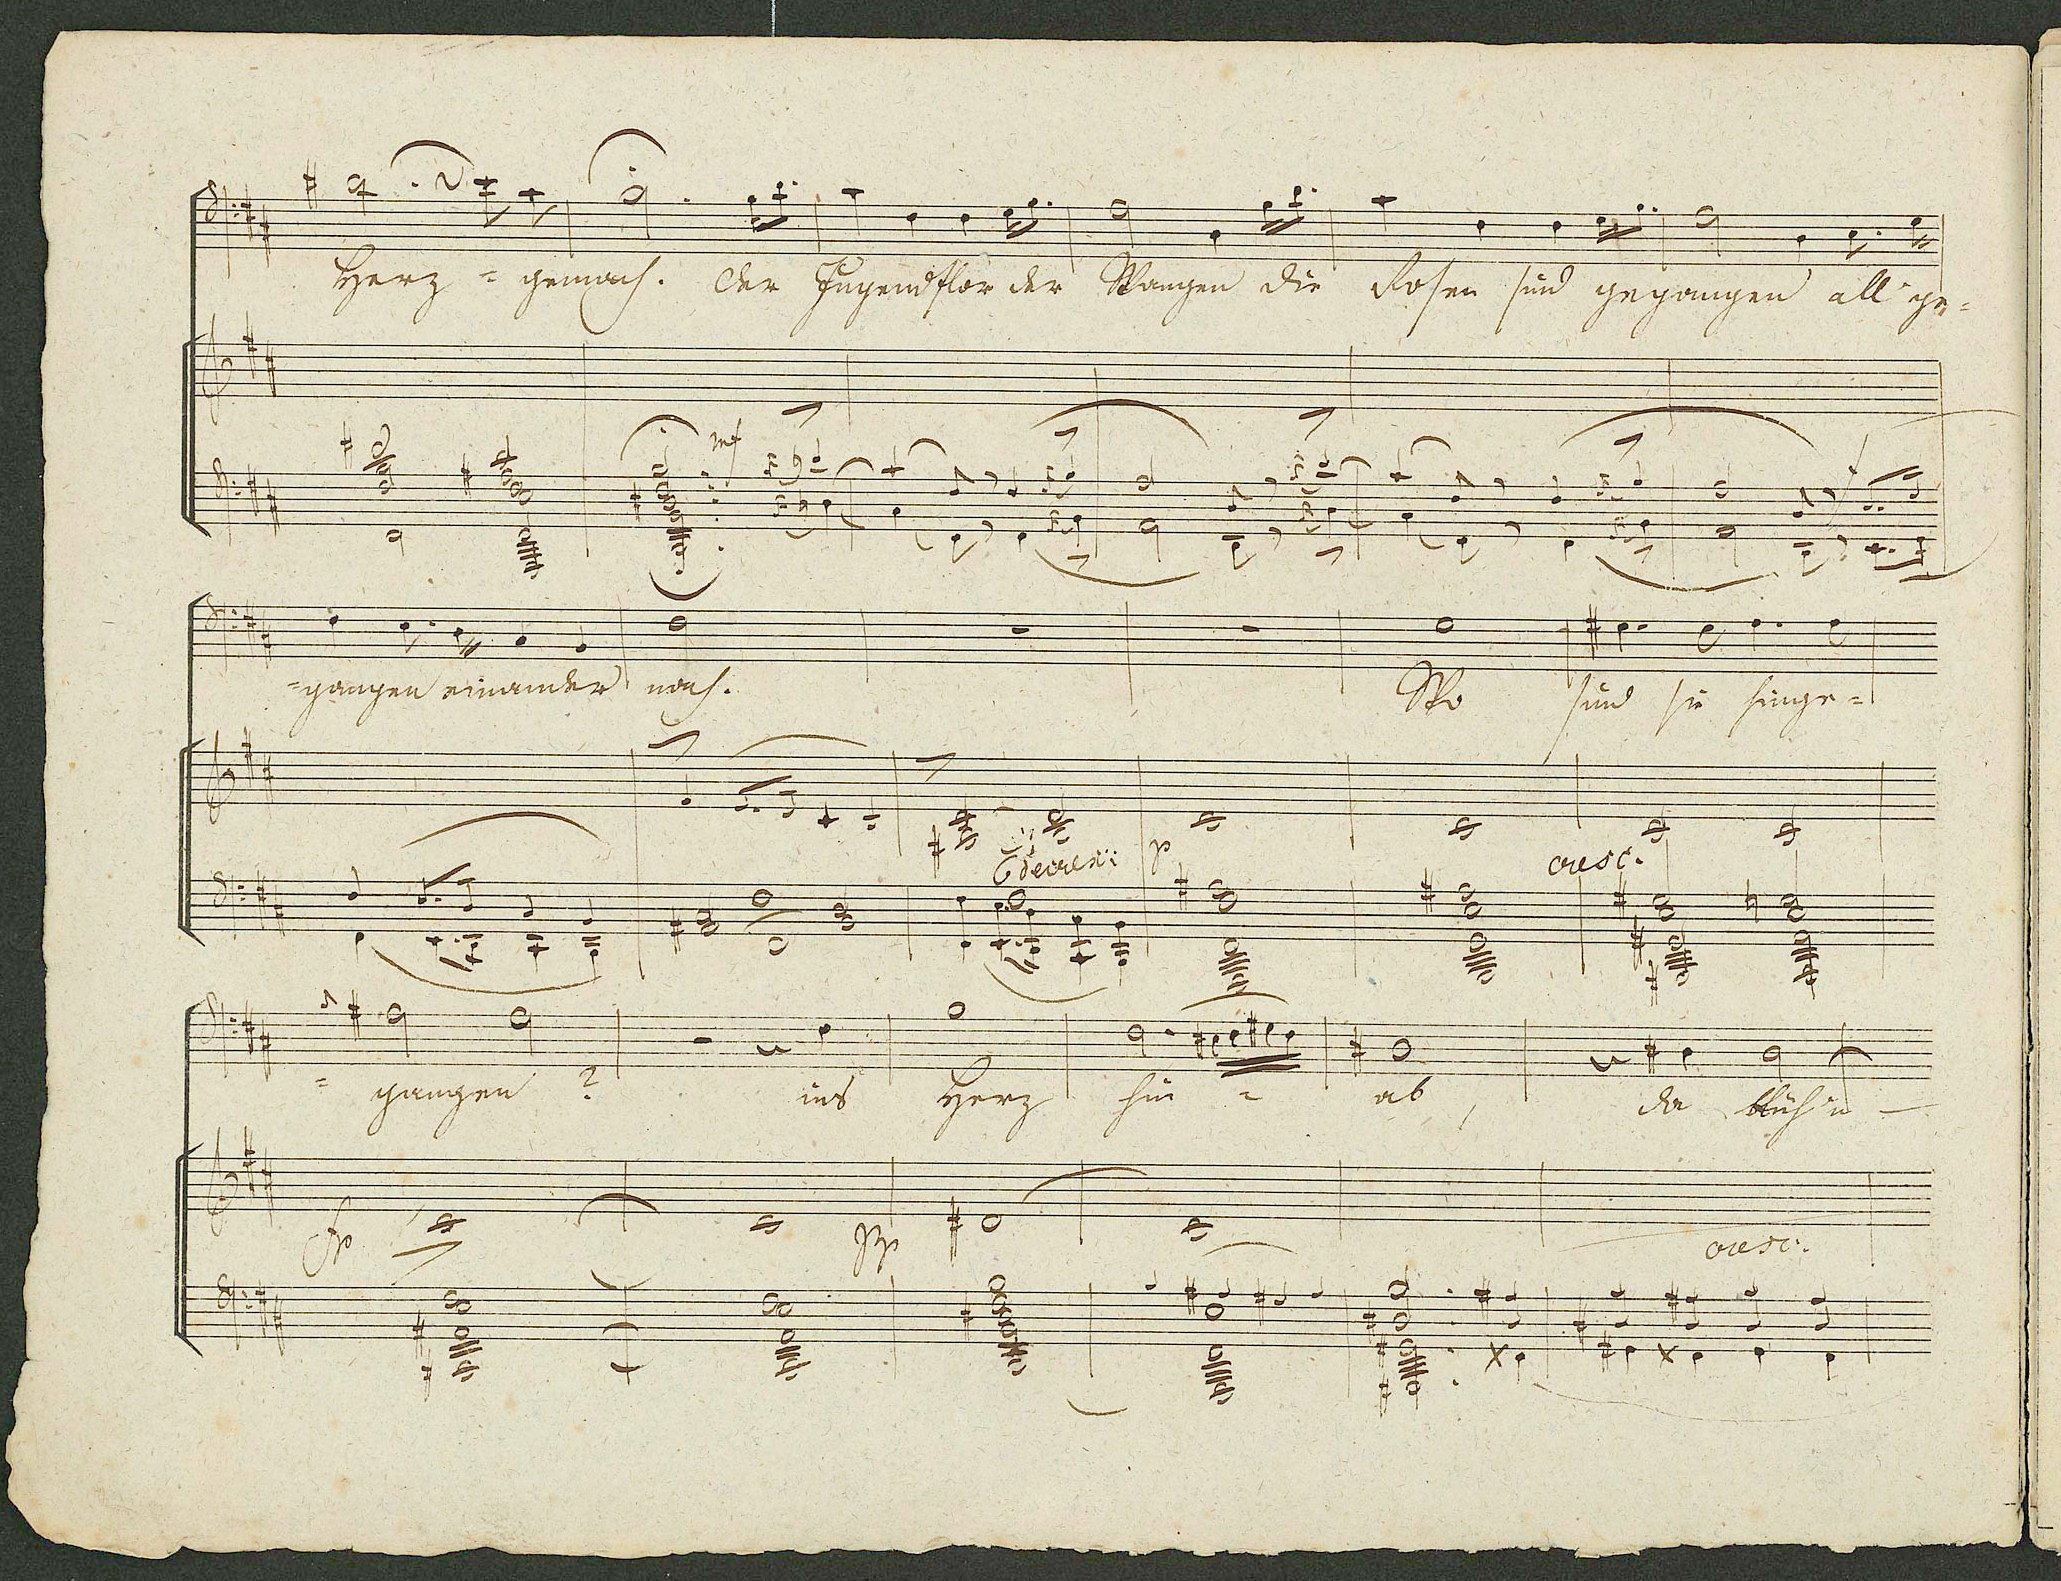 Herz = gemach. der Jugendflor der Wangen die Rosen sind gegangen all' ge=
mf
=gangen einander nach. Wo sind sie hinge=
decresc:
p
cresc.
=gangen ? ins Herz hin = ab , da blüh'n
fp
pp
cresc.